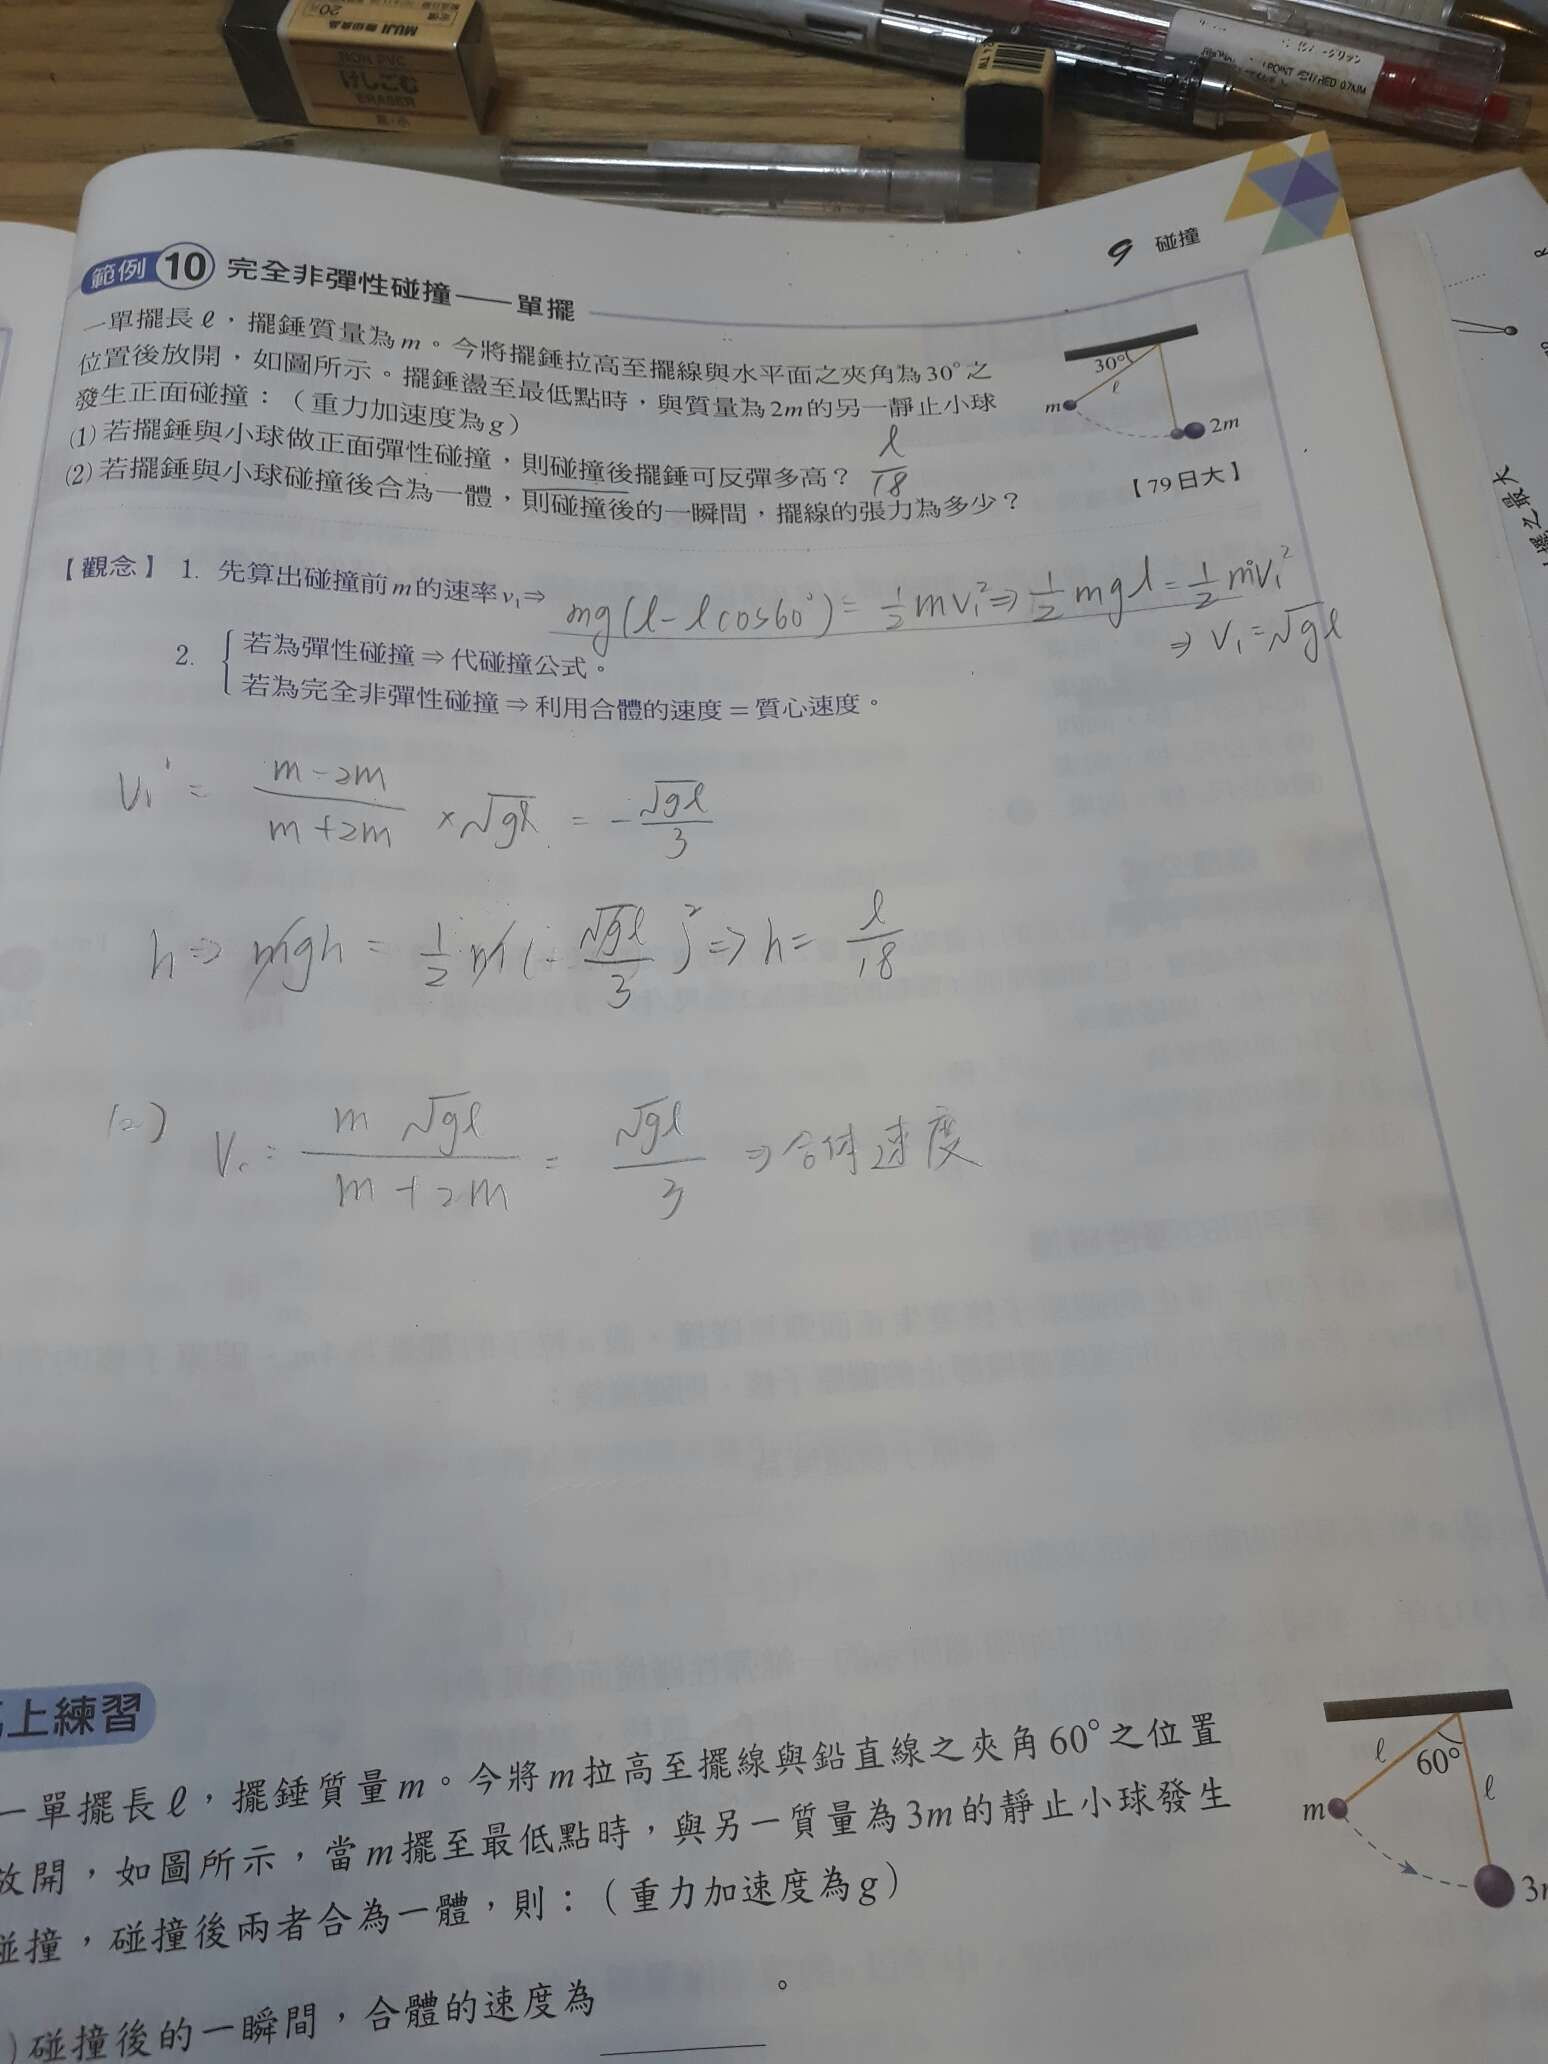 20元
MUJI 無印良品
NON PVC
けしごむ
ERASER
黒・小
9 碰撞
範例 10 完全非彈性碰撞——單擺
一單擺長ℓ，擺錘質量為m。今將擺錘拉高至擺線與水平面之夾角為30°之
位置後放開，如圖所示。擺錘盪至最低點時，與質量為2m的另一靜止小球
發生正面碰撞：（重力加速度為g）
(1) 若擺錘與小球做正面彈性碰撞，則碰撞後擺錘可反彈多高？ ℓ/18
(2) 若擺錘與小球碰撞後合為一體，則碰撞後的一瞬間，擺線的張力為多少？
【79日大】
30°
ℓ
m
2m
【觀念】 1. 先算出碰撞前m的速率v₁⇒ mg(ℓ-ℓcos60°)=½mv₁²⇒½mgℓ=½mv₁²
⇒ V₁=√gℓ
2. { 若為彈性碰撞⇒代碰撞公式。
若為完全非彈性碰撞⇒利用合體的速度＝質心速度。
V₁' = (m-2m)/(m+2m) ×√gℓ = -√gℓ/3
h ⇒ mgh = ½m(-√gℓ/3)² ⇒ h = ℓ/18
(2) Vc = m√gℓ/(m+2m) = √gℓ/3 ⇒ 合体速度
上練習
一單擺長ℓ，擺錘質量m。今將m拉高至擺線與鉛直線之夾角60°之位置
放開，如圖所示，當m擺至最低點時，與另一質量為3m的靜止小球發生
碰撞，碰撞後兩者合為一體，則：（重力加速度為g）
)碰撞後的一瞬間，合體的速度為＿＿＿。
ℓ
60°
ℓ
m
3m